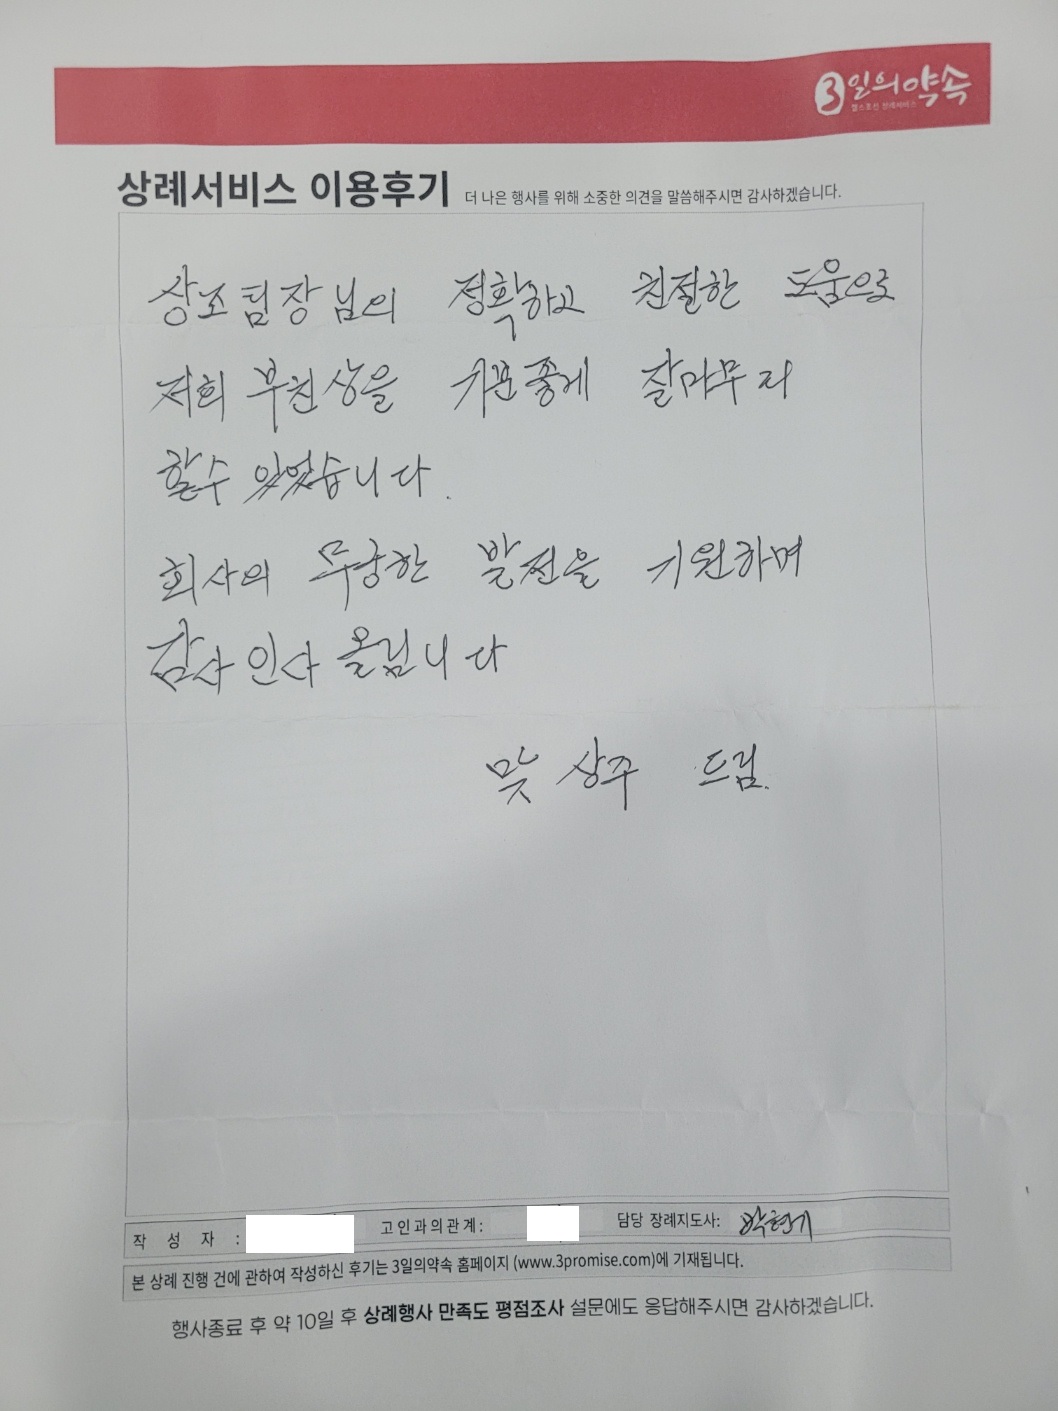 3일의약속
헬스조선 상례서비스
상례서비스 이용후기 더 나은 행사를 위해 소중한 의견을 말씀해주시면 감사하겠습니다.
상조팀장님의 정확하고 친절한 도움으로
저희 부친상을 기분좋게 잘마무리
할수 있었습니다.
회사의 무궁한 발전을 기원하며
감사인사 올립니다
맞상주 드림.
작 성 자 : 고인과의관계: 담당 장례지도사:
본 상례 진행 건에 관하여 작성하신 후기는 3일의약속 홈페이지 (www.3promise.com)에 기재됩니다.
행사종료 후 약 10일 후 상례행사 만족도 평점조사 설문에도 응답해주시면 감사하겠습니다.